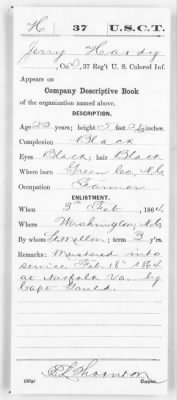 H 37 U.S.C.T.
Jerry Hardy
Co. D, 37 Reg't U. S. Colored Inf.
Appears on
Company Descriptive Book
of the organization named above.
DESCRIPTION.
Age 22 years; height 5 feet inches.
Complexion Black
Eyes Black; hair Black
Where born Green Co, N.C.
Occupation Farmer
ENLISTMENT.
When 3" Feb, 1864.
Where Washington, N.C.
By whom ; term 3 y'rs.
Remarks: Mustered into
service Feb. 18" 1864
at Norfolk Va. by
Capt. Gould.
Thornton
Copyist.